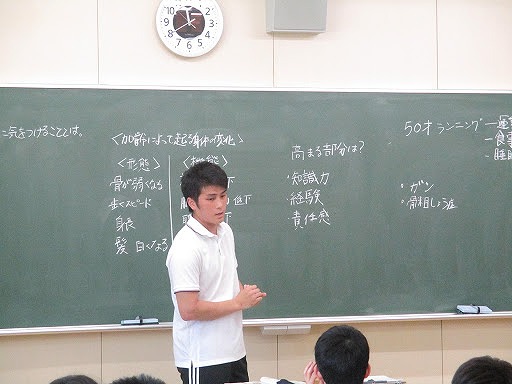 に気をつけることは。
<加齢によって起る身体の変化>
<形態>
骨が弱くなる
歩くスピード
身長
髪 白くなる
<機能>
低下
下
高まる部分は?
・知識力
・経験
・責任感
50才 ランニング
・ガン
・骨粗しょう症